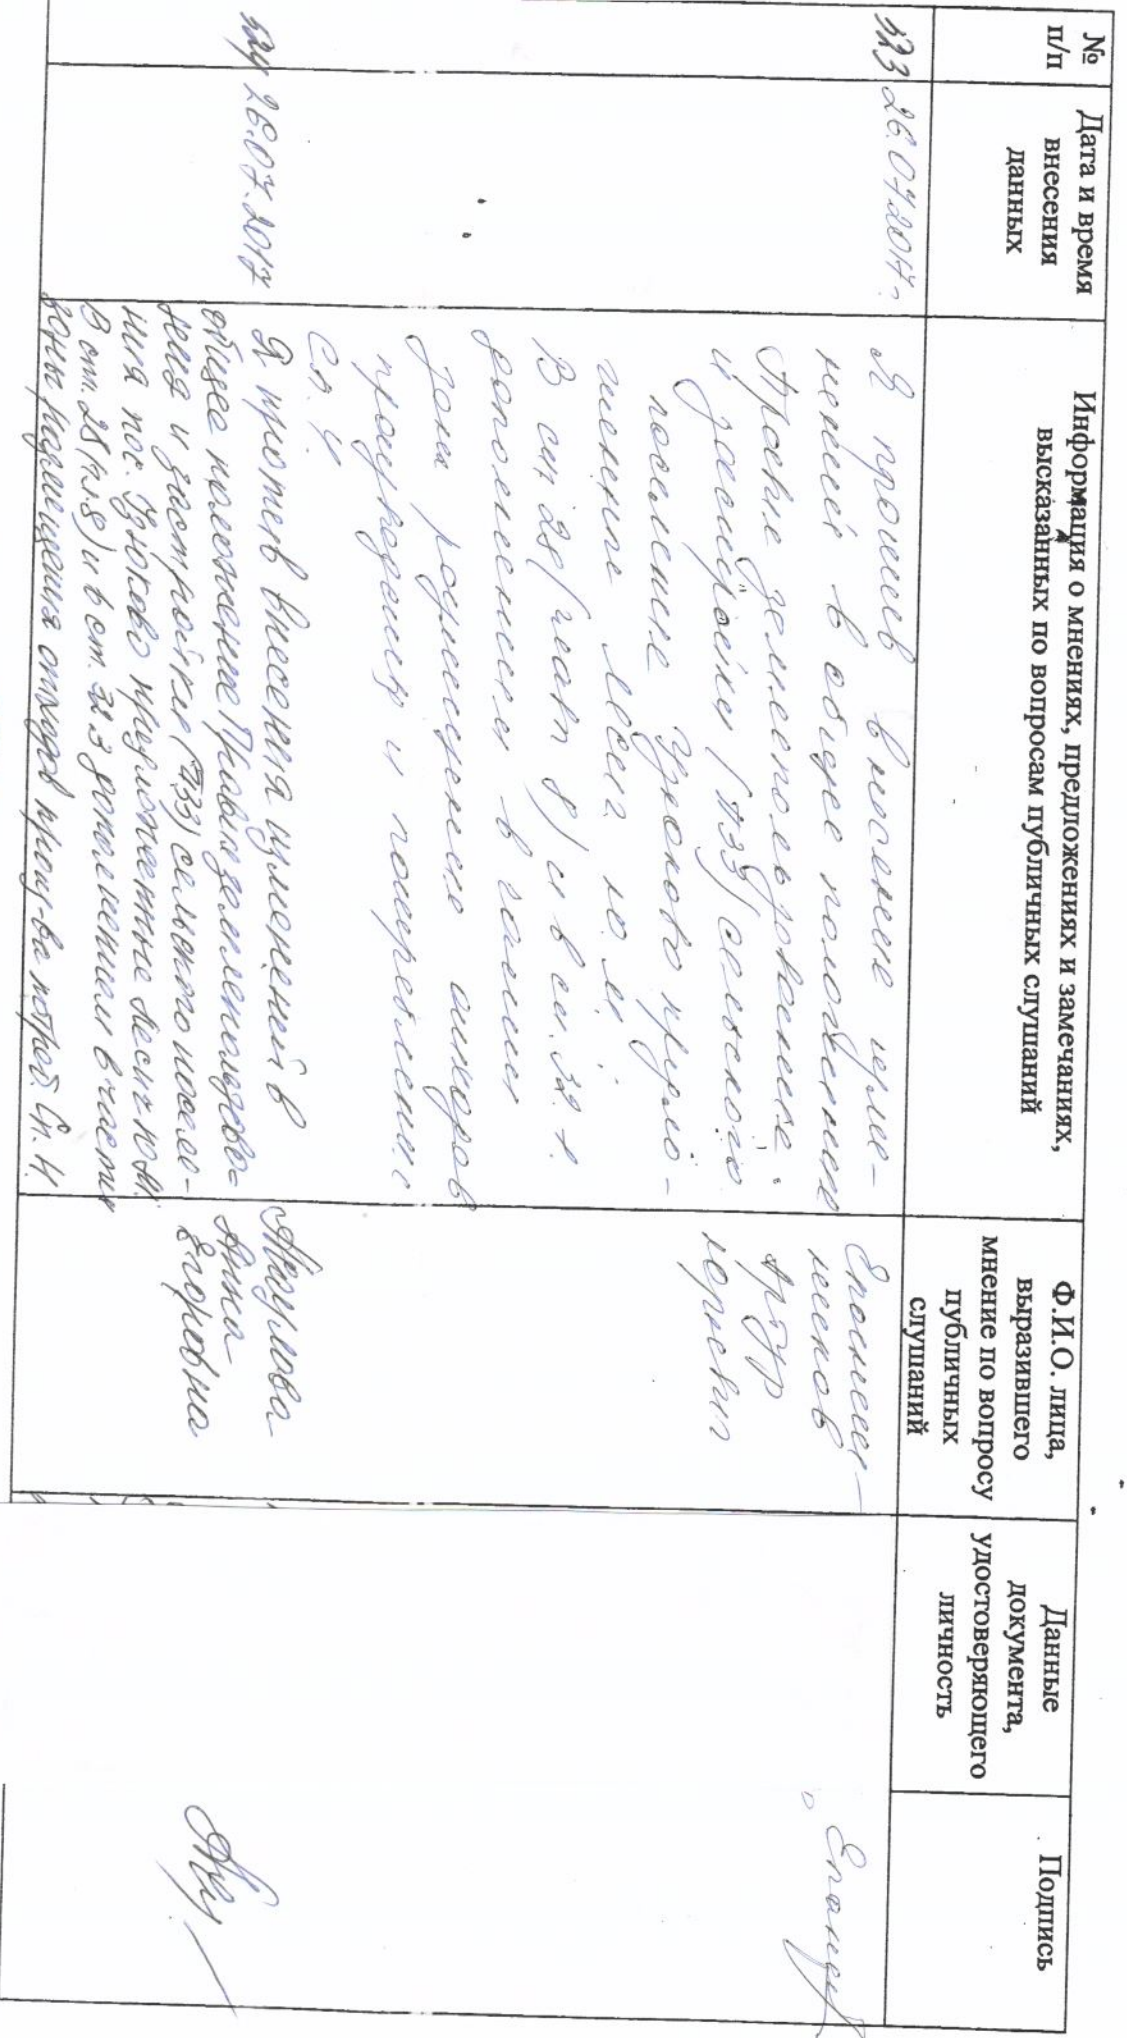 №
п/п
Дата и время
внесения
данных
Информация о мнениях, предложениях и замечаниях,
высказанных по вопросам публичных слушаний
Ф.И.О. лица,
выразившего
мнение по вопросу
публичных
слушаний
Данные
документа,
удостоверяющего
личность
Подпись
523
26.07.2017г
Я против внесение изме-
нений в общее положение
землепользование
и застройки (ПЗЗ) сельского
поселение Узюково предло-
женные
В ст 28 (част 8) и в ст. 32.
дополнениея в
зоны розмещение отходов
производсия и потребления
Сп. 4
Артур
524
26.07.2017
Я против внесения изменений в
общее положение Правил землепользова-
ния и застройки (ПЗЗ) сельского поселе-
ния пос. Узюково предложенные Лесич Ю.М.
В ст. 28 (п.8) и в ст. 32.3 дополнениям в части
зоны размещения отходов произ-ва потреб. Сп. 4.
Анна
Егоровна